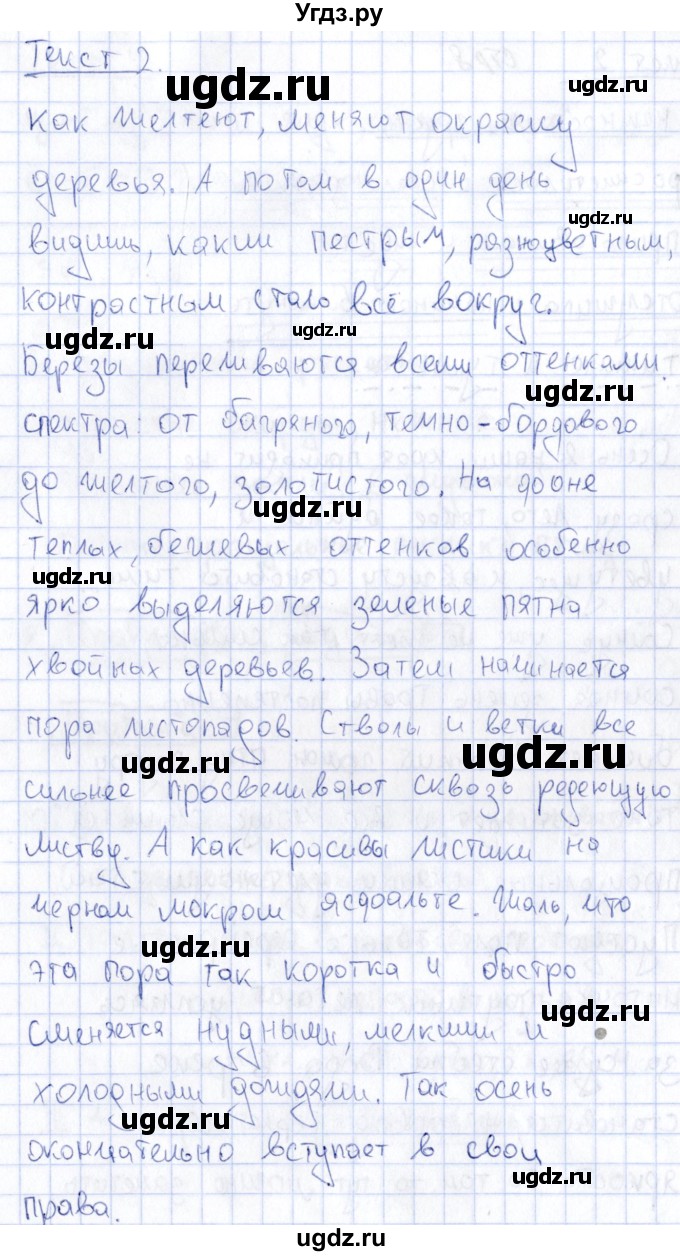 Угдз.ру
Текст 2.
ugdz.ru
Как желтеют, меняют окраску
деревья. А потом в один день
ugdz.ru
ugdz.ru
видишь, каким пестрым, разноцветным,
контрастным стало всё вокруг.
ugdz.ru
ugdz.ru
Березы переливаются всеми оттенками
ugdz.ru
спектра: от багряного, темно-бордового
до желтого, золотистого. На фоне
ugdz.ru
теплых, бежевых оттенков особенно
ugdz.ru
ярко выделяются зеленые пятна
хвойных деревьев. Затем начинается
пора листопадов. Стволы и ветки все
ugdz.ru
ugdz.ru
сильнее просвечивают сквозь редеющую
листву. А как красивы листики на
черном мокром асфальте. Жаль, что
ugdz.ru
эта пора так коротка и быстро
сменяется нудными, мелкими и
ugdz.ru
холодными дождями. Так осень
ugdz.ru
окончательно вступает в свои
ugdz.ru
права.
ugdz.ru